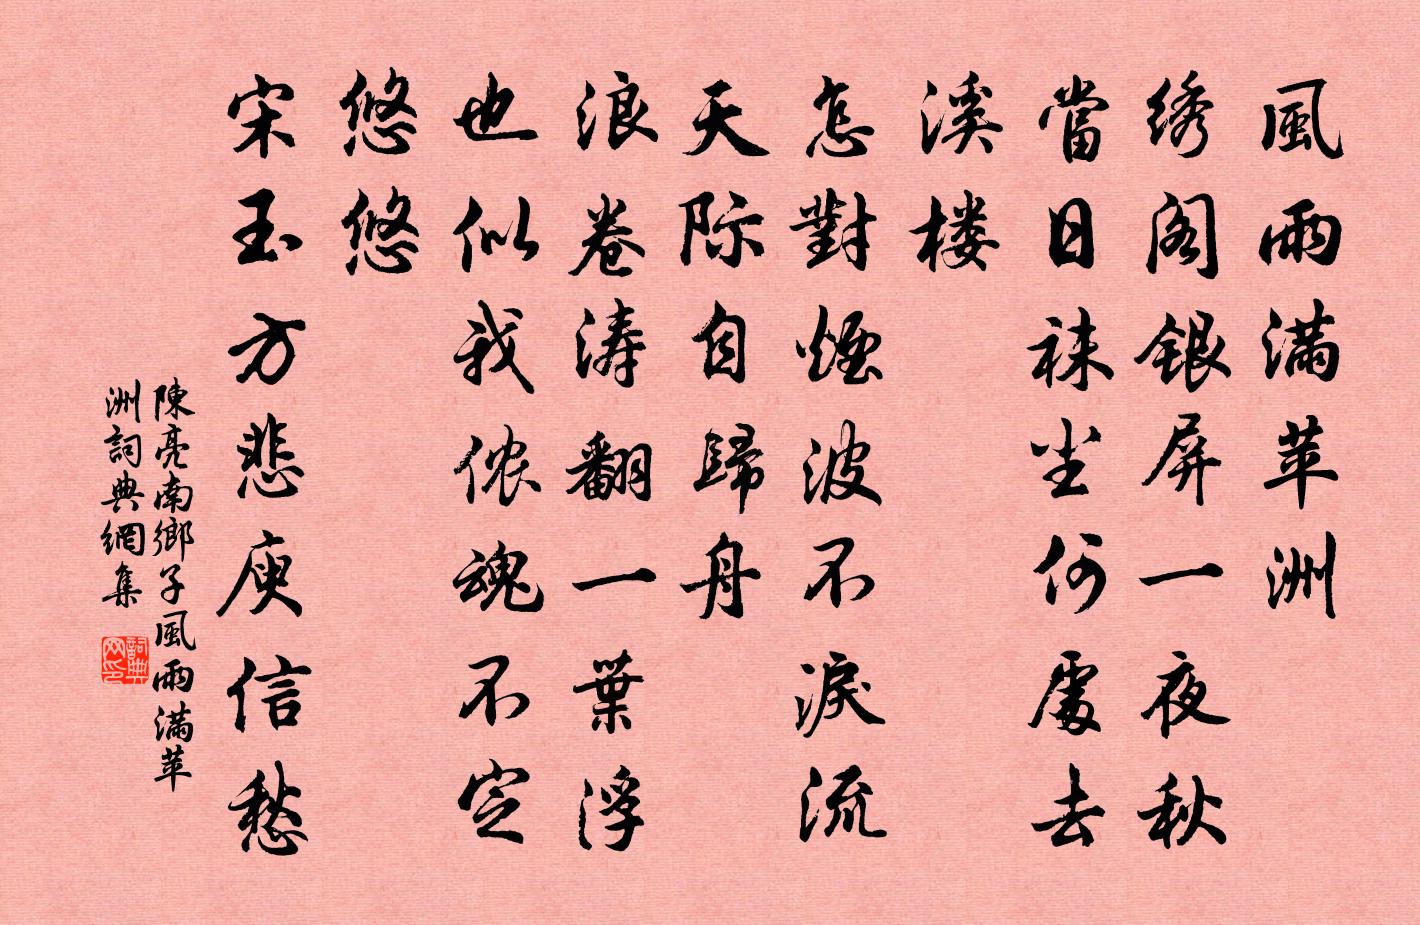 風雨满苹洲
绣阁銀屏一夜秋
當日袜尘何處去
溪楼
怎對煙波不淚流
天际自歸舟
浪卷涛翻一葉浮
也似我侬魂不定
悠悠
宋玉方悲庾信愁
陳亮南鄉子風雨满苹
洲詞典網集
詞典
网印